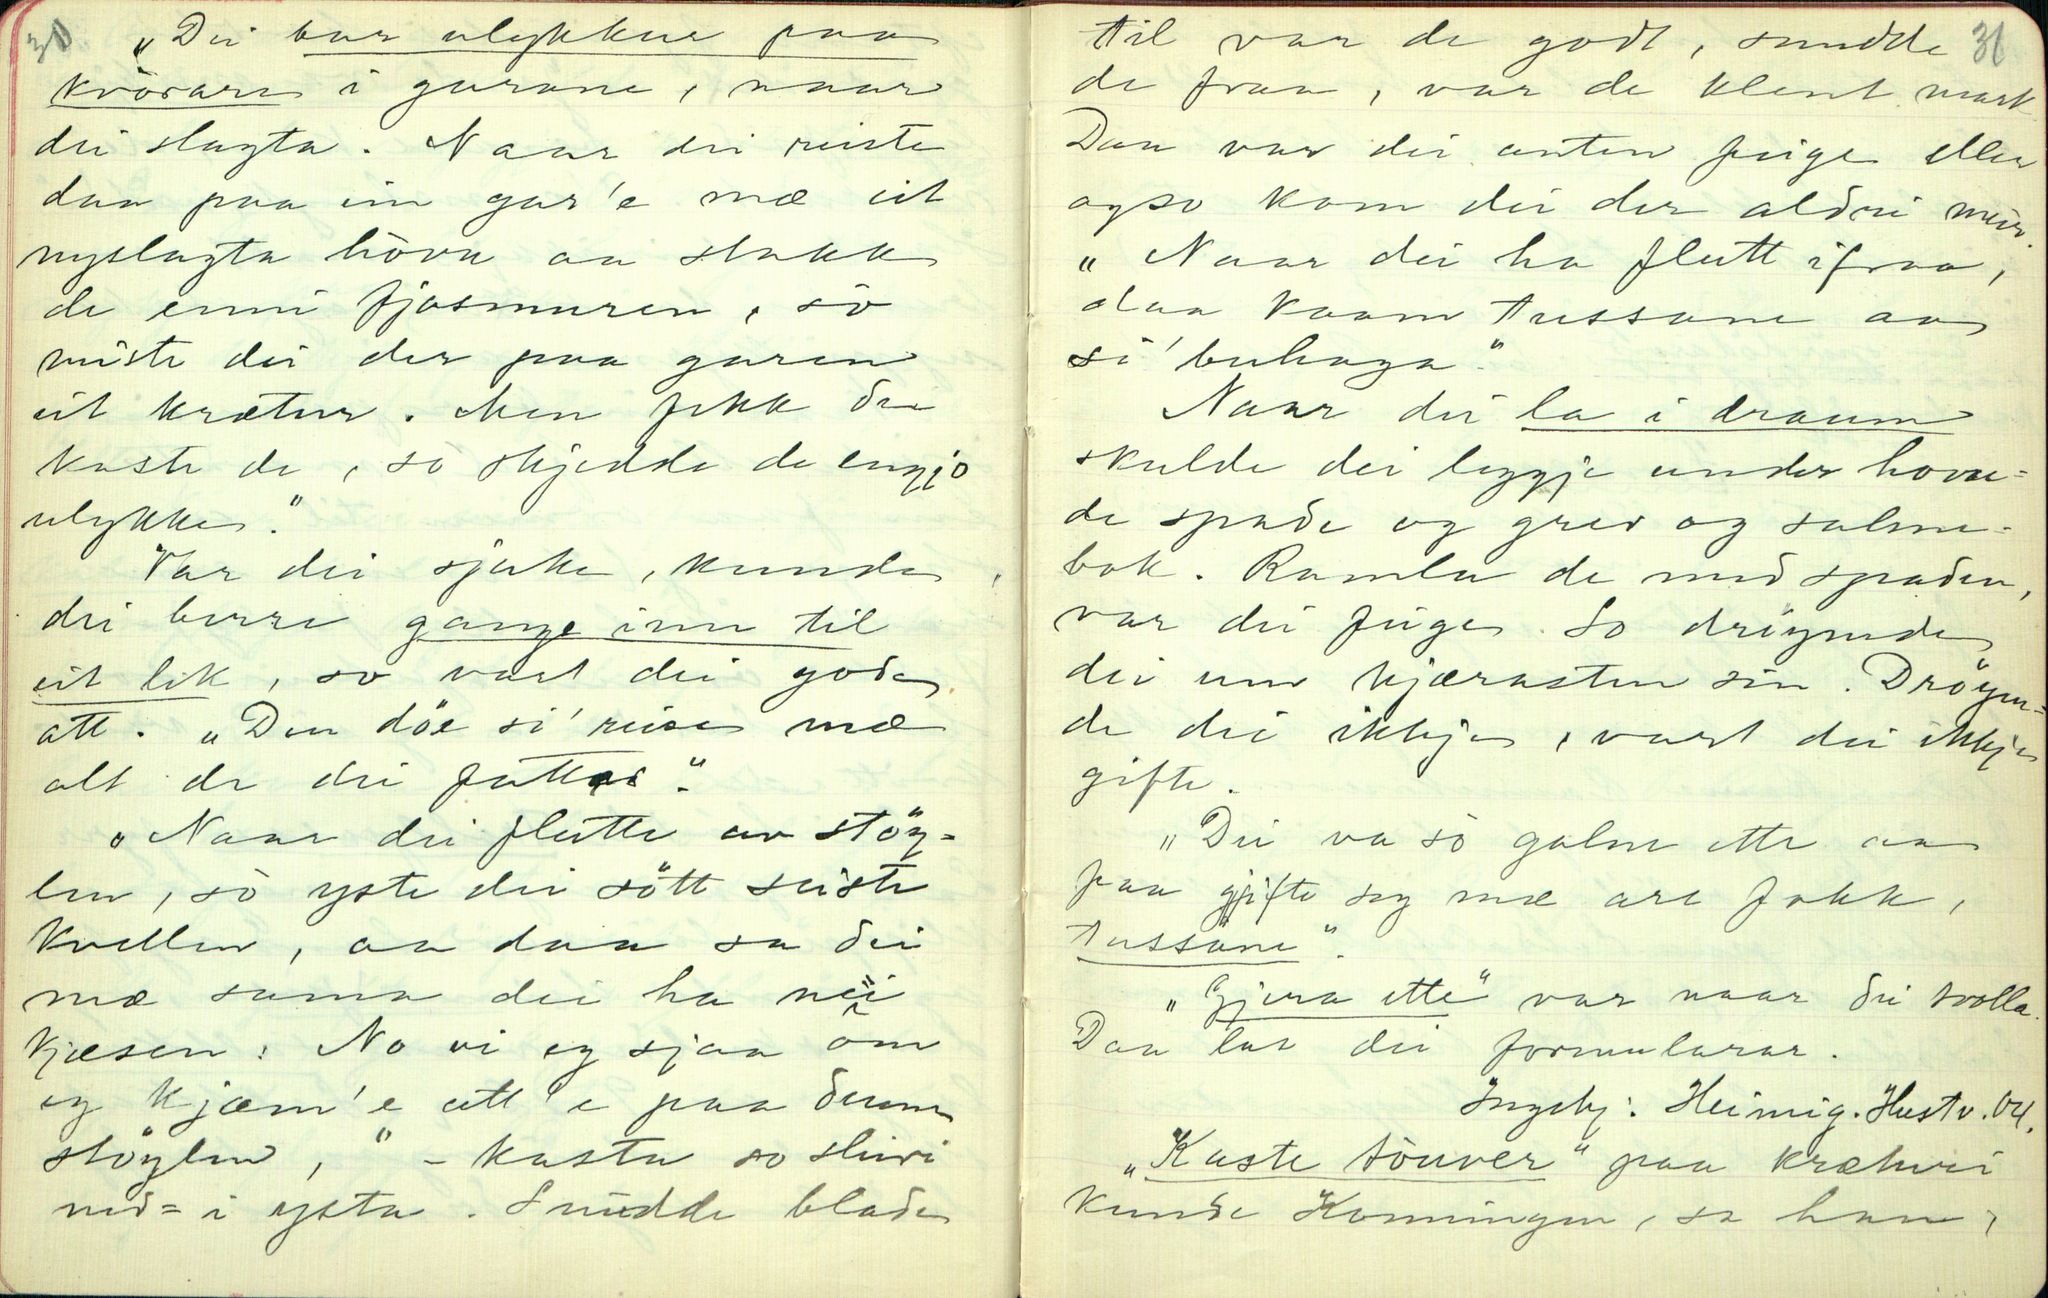 30
„Dei bar ulykkur paa
kvörare i garane, naar
dei slagta. Naar dei reiste
daa paa ein gar'e mæ eit
nyslagta hövu aa stakk
de enni fjosmuren, so
miste dei der paa garen
eit krætur. Men fekk dei
kaste de, so skjedde de engjo
ulykke."
Var dei sjuke, kunde
dei berre gange inn til
eit lik, so vart dei gode
att. „Den döe si' reise mæ
alt de dei fattas".
„Naar dei flutte av stöy-
len, so yste dei sött siste
kvellen, aa daa sa dei
mæ sama dei ha nei i
kjæsen: No vi eg sjaa om
eg kjæm'e att'e paa denne
stöylen," – kasta so skeiri
ned- i ysta. Snudde blade
31
til var de godt, snudde
de fraa, var de klent mark.
Daa var dei anten feige eller
ogso kom dei der aldri meir.
„Naar dei ha flutt ifraa,
daa kaam tussane aa
si' buhaga".
Naar dei la i draum
skulde dei leggje under hovu-
de spade og grev og salme-
bok. Ramla de med spaden,
var dei feige. So dröymde
dei um kjærasten sin. Dröym-
de dei ikkje, vart dei ikkje
gifte.
„Dei va so galne ette aa
faa gjifte seg mæ are fokk,
tussane".
„Gjera ette" var naar dei trolla.
Daa las dei formularar.
Ingebj: Heimig. Hustv. 04.
„Kaste töuver" paa kræturi
kunde Konningen, sa han,